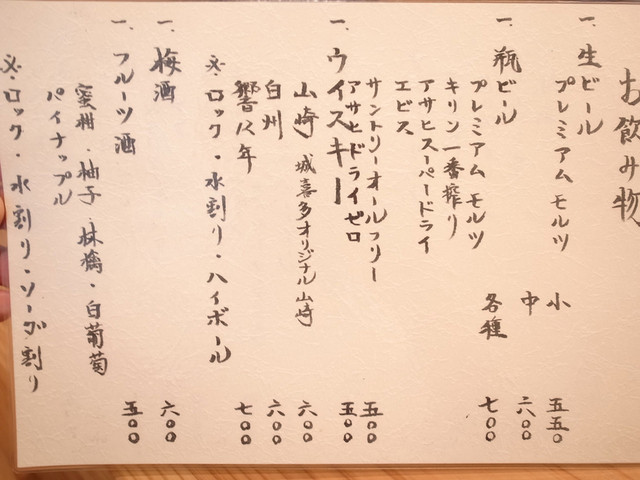 お飲み物
一、生ビール
プレミアムモルツ 小 五五〇
中 六〇〇
一、瓶ビール 各種 七〇〇
プレミアムモルツ
キリン一番搾り
アサヒスーパードライ
エビス
サントリーオールフリー 五〇〇
アサヒドライゼロ 五〇〇
一、ウイスキー
山崎 城喜多オリジナル山崎 六〇〇
白州 六〇〇
響12年 七〇〇
※ロック・水割り・ハイボール
一、梅酒 六〇〇
一、フルーツ酒 五〇〇
蜜柑・柚子・林檎・白葡萄
パイナップル
※ロック・水割り・ソーダ割り